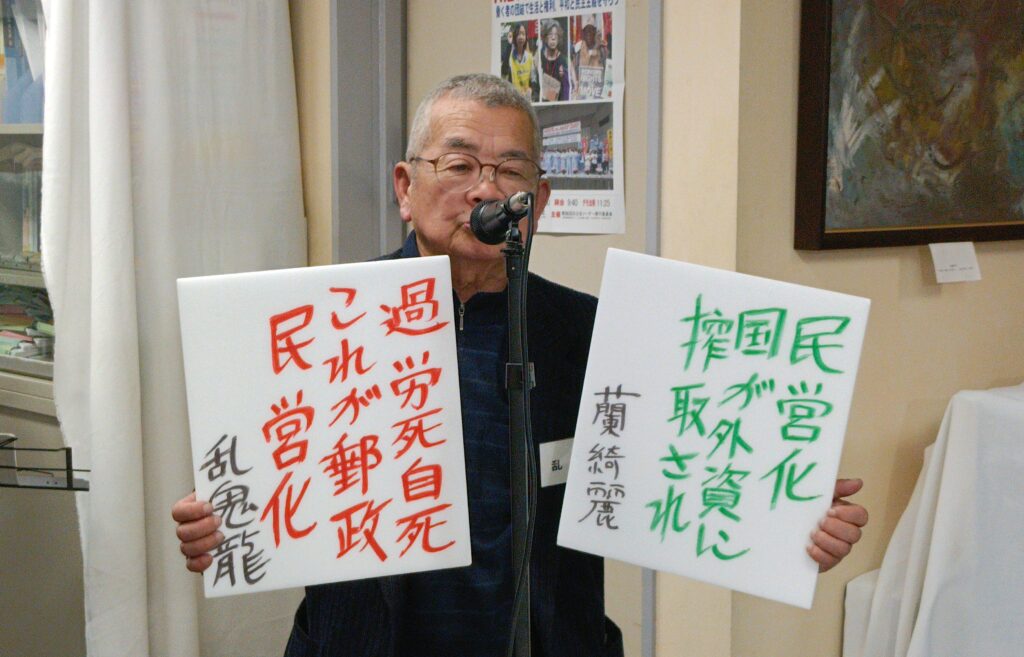 働く者の団結で生活と権利、平和と民主主義を守ろう
MOVE
9:40
11:25
過労死自死
これが郵政
民営化
乱鬼龍
乱
民営化
国が外資に
搾取され
蘭綺麗